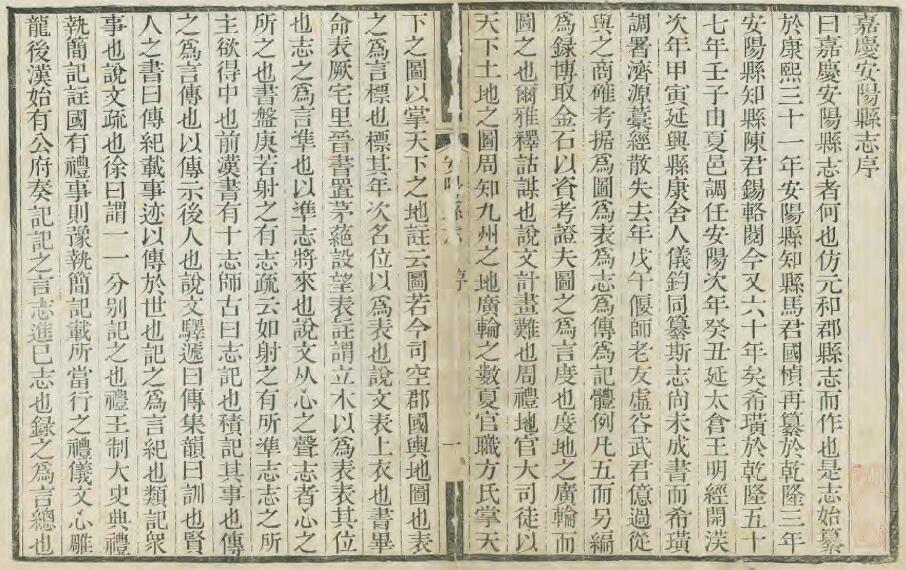 嘉慶安陽縣志序
曰嘉慶安陽縣志者何也仿元和郡縣志而作也是志始纂
於康熙三十一年安陽縣知縣馬君國楨再纂於乾隆三年
安陽縣知縣陳君錫輅閱今又六十年矣希璜於乾隆五十
七年壬子由夏邑調任安陽次年癸丑延太倉王明經開渶
次年甲寅延興縣康舍人儀鈞同纂斯志尚未成書而希璜
調署濟源藁經散失去年戊午偃師老友虛谷武君億過從
與之商確考据爲圖爲表爲志爲傳爲記體例凡五而另編
爲錄博取金石以資考證夫圖之爲言度也度地之廣輪而
圖之也爾雅釋詁謀也說文計畫難也周禮地官大司徒以
天下土地之圖周知九州之地廣輪之數夏官職方氏掌天
序
一
下之圖以掌天下之地註云圖若今司空郡國輿地圖也表
之爲言標也標其年次名位以爲表也說文表上衣也書畢
命表厥宅里晉書置茅蕝設望表註謂立木以爲表表其位
也志之爲言準也以準志將來也說文从心之聲志者心之
所之也書盤庚若射之有志疏云如射之有所準志志之所
主欲得中也前漢書有十志師古曰志記也積記其事也傳
之爲言傳也以傳示後人也說文驛遞曰傳集韻曰訓也賢
人之書曰傳紀載事迹以傳於世也記之爲言紀也類記衆
事也說文疏也徐曰謂一一分別記之也禮王制大史典禮
執簡記註國有禮事則豫執簡記載所當行之禮儀文心雕
龍後漢始有公府奏記記之言志進已志也錄之爲言總也